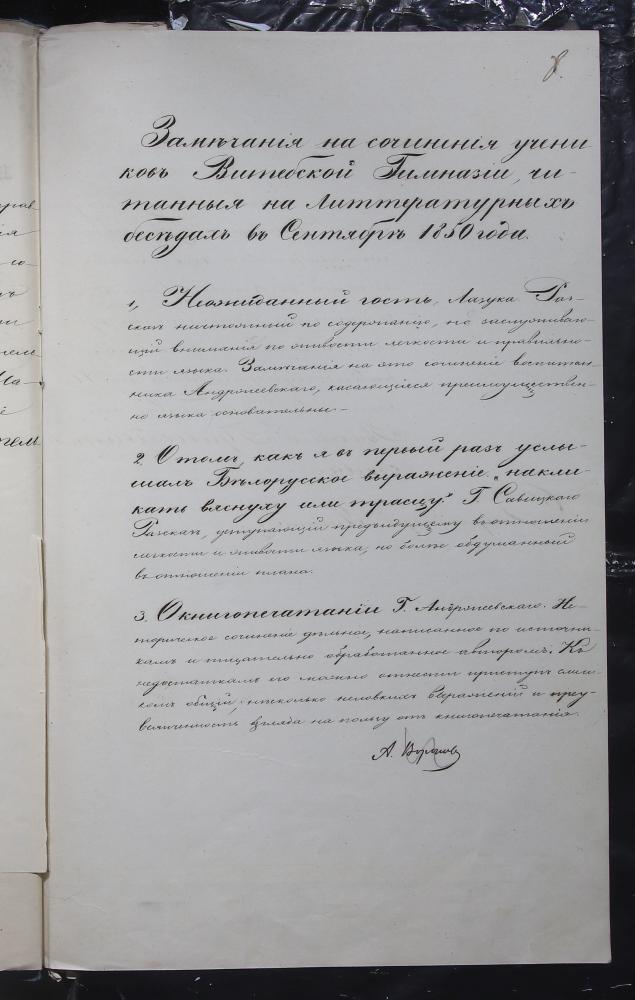 8.
Замѣчанія на сочиненія учени
ковъ Витебской Гимназіи, чи-
танныя на Литтературныхъ
бесѣдахъ въ Сентябрѣ 1850 года.
1, Неожиданный гость, Лазука Раз-
сказъ ничтожный по содержанію, но заслуживаю-
щій вниманія по живости легкости и правильно-
сти языка. Замѣчанія на это сочиненіе воспитан-
ника Андріевскаго, касающіяся преимуществен-
но языка основательны.-
2. О томъ, какъ я въ первый разъ услы-
шалъ Бѣлорусское выраженіе „накли-
кать вяснуху или трасцу." Г. Савицкаго
Разсказъ, уступающій предъидущему въ отношеніи
легкости и живости языка, но болѣе обдуманный
въ отношеніи плана.
3. О книгопечатаніи Г. Андріевскаго. Ис-
торическое сочиненіе дѣльное, написанное по источни-
камъ и тщательно обработанное авторомъ. Къ
недостаткамъ его можно отнести приступъ слиш-
комъ общій, нѣсколько неловкихъ выраженій и преу-
величенность взгляда на пользу отъ книгопечатанія.
А.